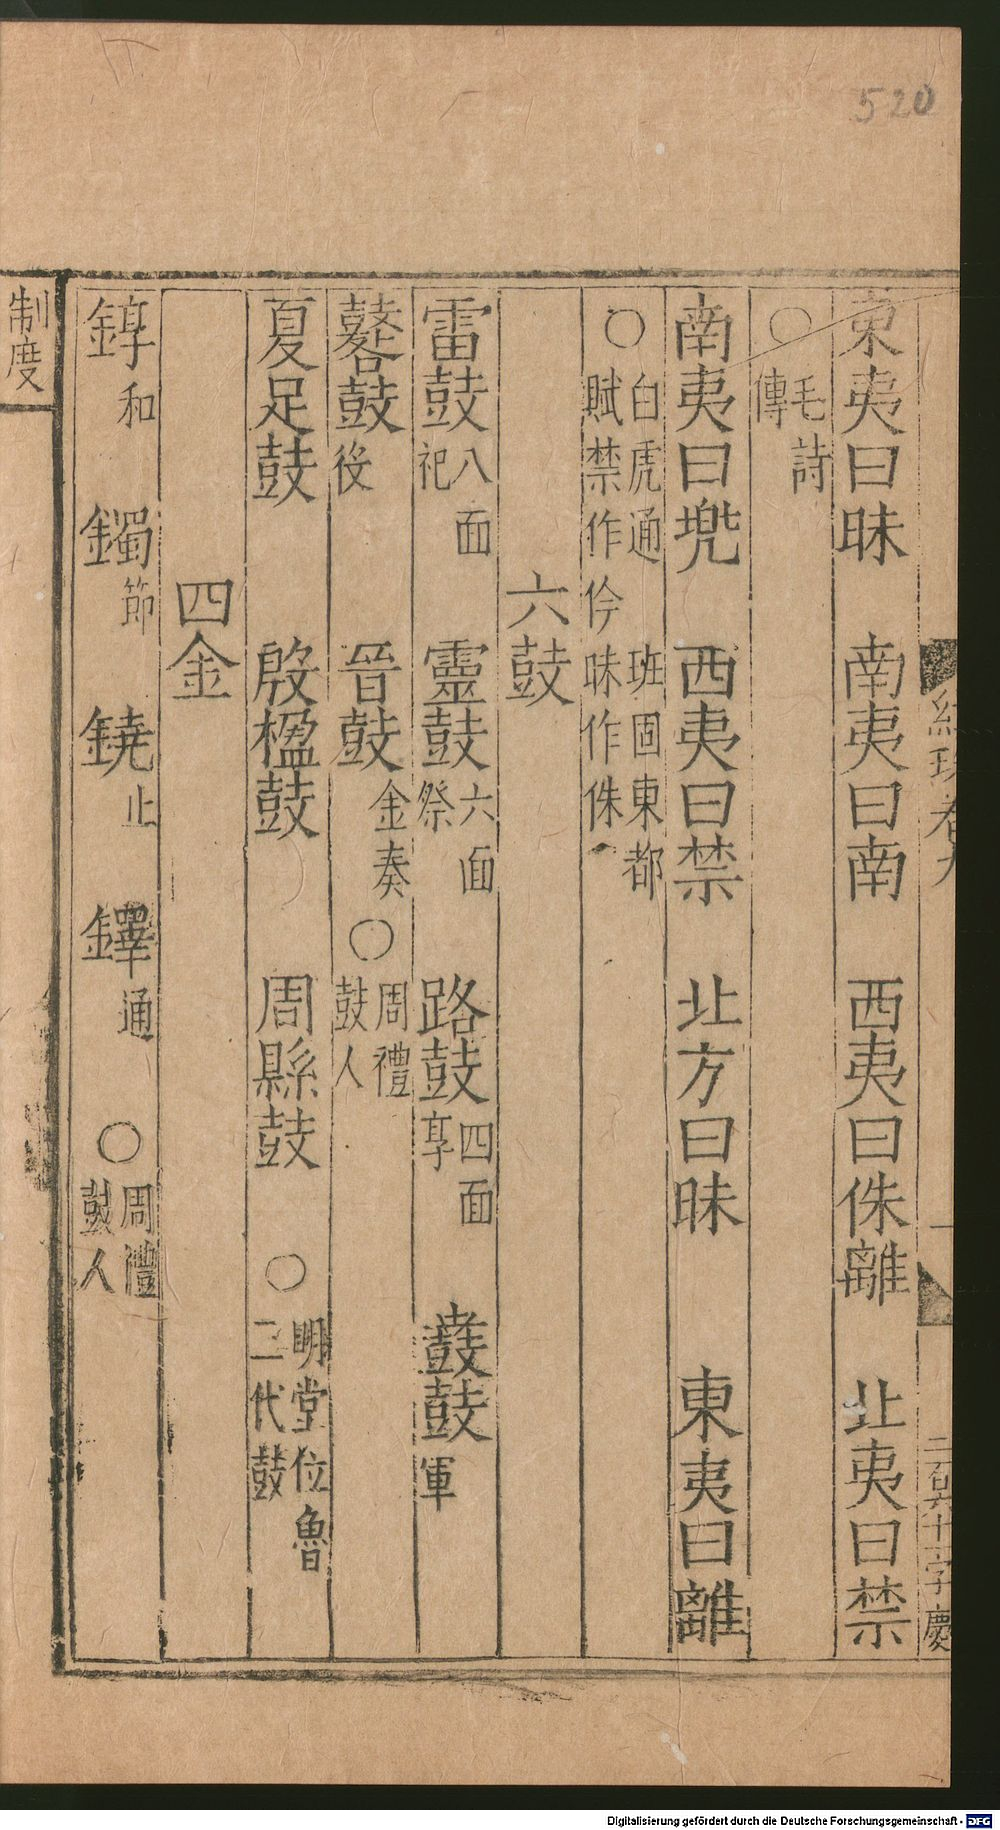 520
東夷曰昧　南夷曰南　西夷曰侏離　北夷曰禁
○毛詩傳
南夷曰兠　西夷曰禁　北方曰昧　東夷曰離
○白虎通　班固東都賦禁作仱昧作侏
六鼓
雷鼓八面祀　靈鼓六面祭　路鼓四面享　鼖鼓軍
鼛鼓役　晉鼓金奏○周禮鼓人
夏足鼓　殷楹鼓　周縣鼓　○明堂位魯二代鼓
四金
錞和　鐲節　鐃止　鐸通　○周禮鼓人
制度
卷九
一
二百六十字慶
Digitalisierung gefördert durch die Deutsche Forschungsgemeinschaft - DFG